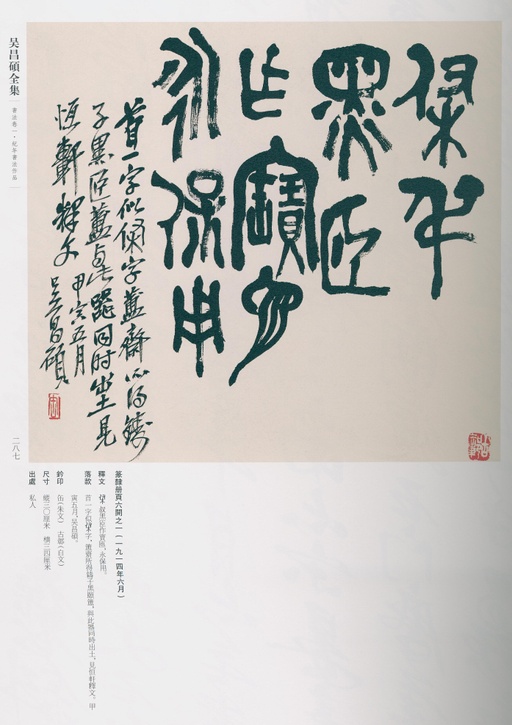 叔
黑臣
乍寶匜
永保用
首一字似字簠齋所得鑄
子黑臣簠與此器同時出土見
恆軒釋文 甲寅五月
吳昌碩
篆隸册頁六開之一(一九一四年六月)
釋文 叔黑臣作寶匜,永保用。
落款 首一字似字,簠齋所得鑄子黑頤簠,與此器同時出土,見恒軒釋文。甲
寅五月,吳昌碩。
鈐印 缶(朱文) 古鄣(白文)
尺寸 縱三〇厘米 橫三四厘米
出處 私人
吴昌碩全集 書法卷一·紀年書法作品
二八七